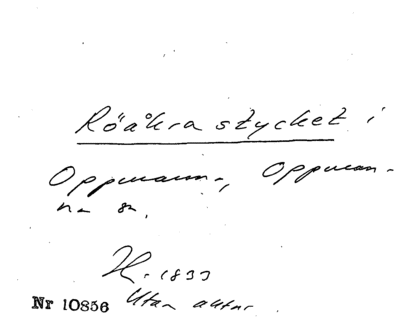 Röåkra stycket i
Oppmanna, Oppman-
na sn.
H. 1833
Nr 10856 Utan autor